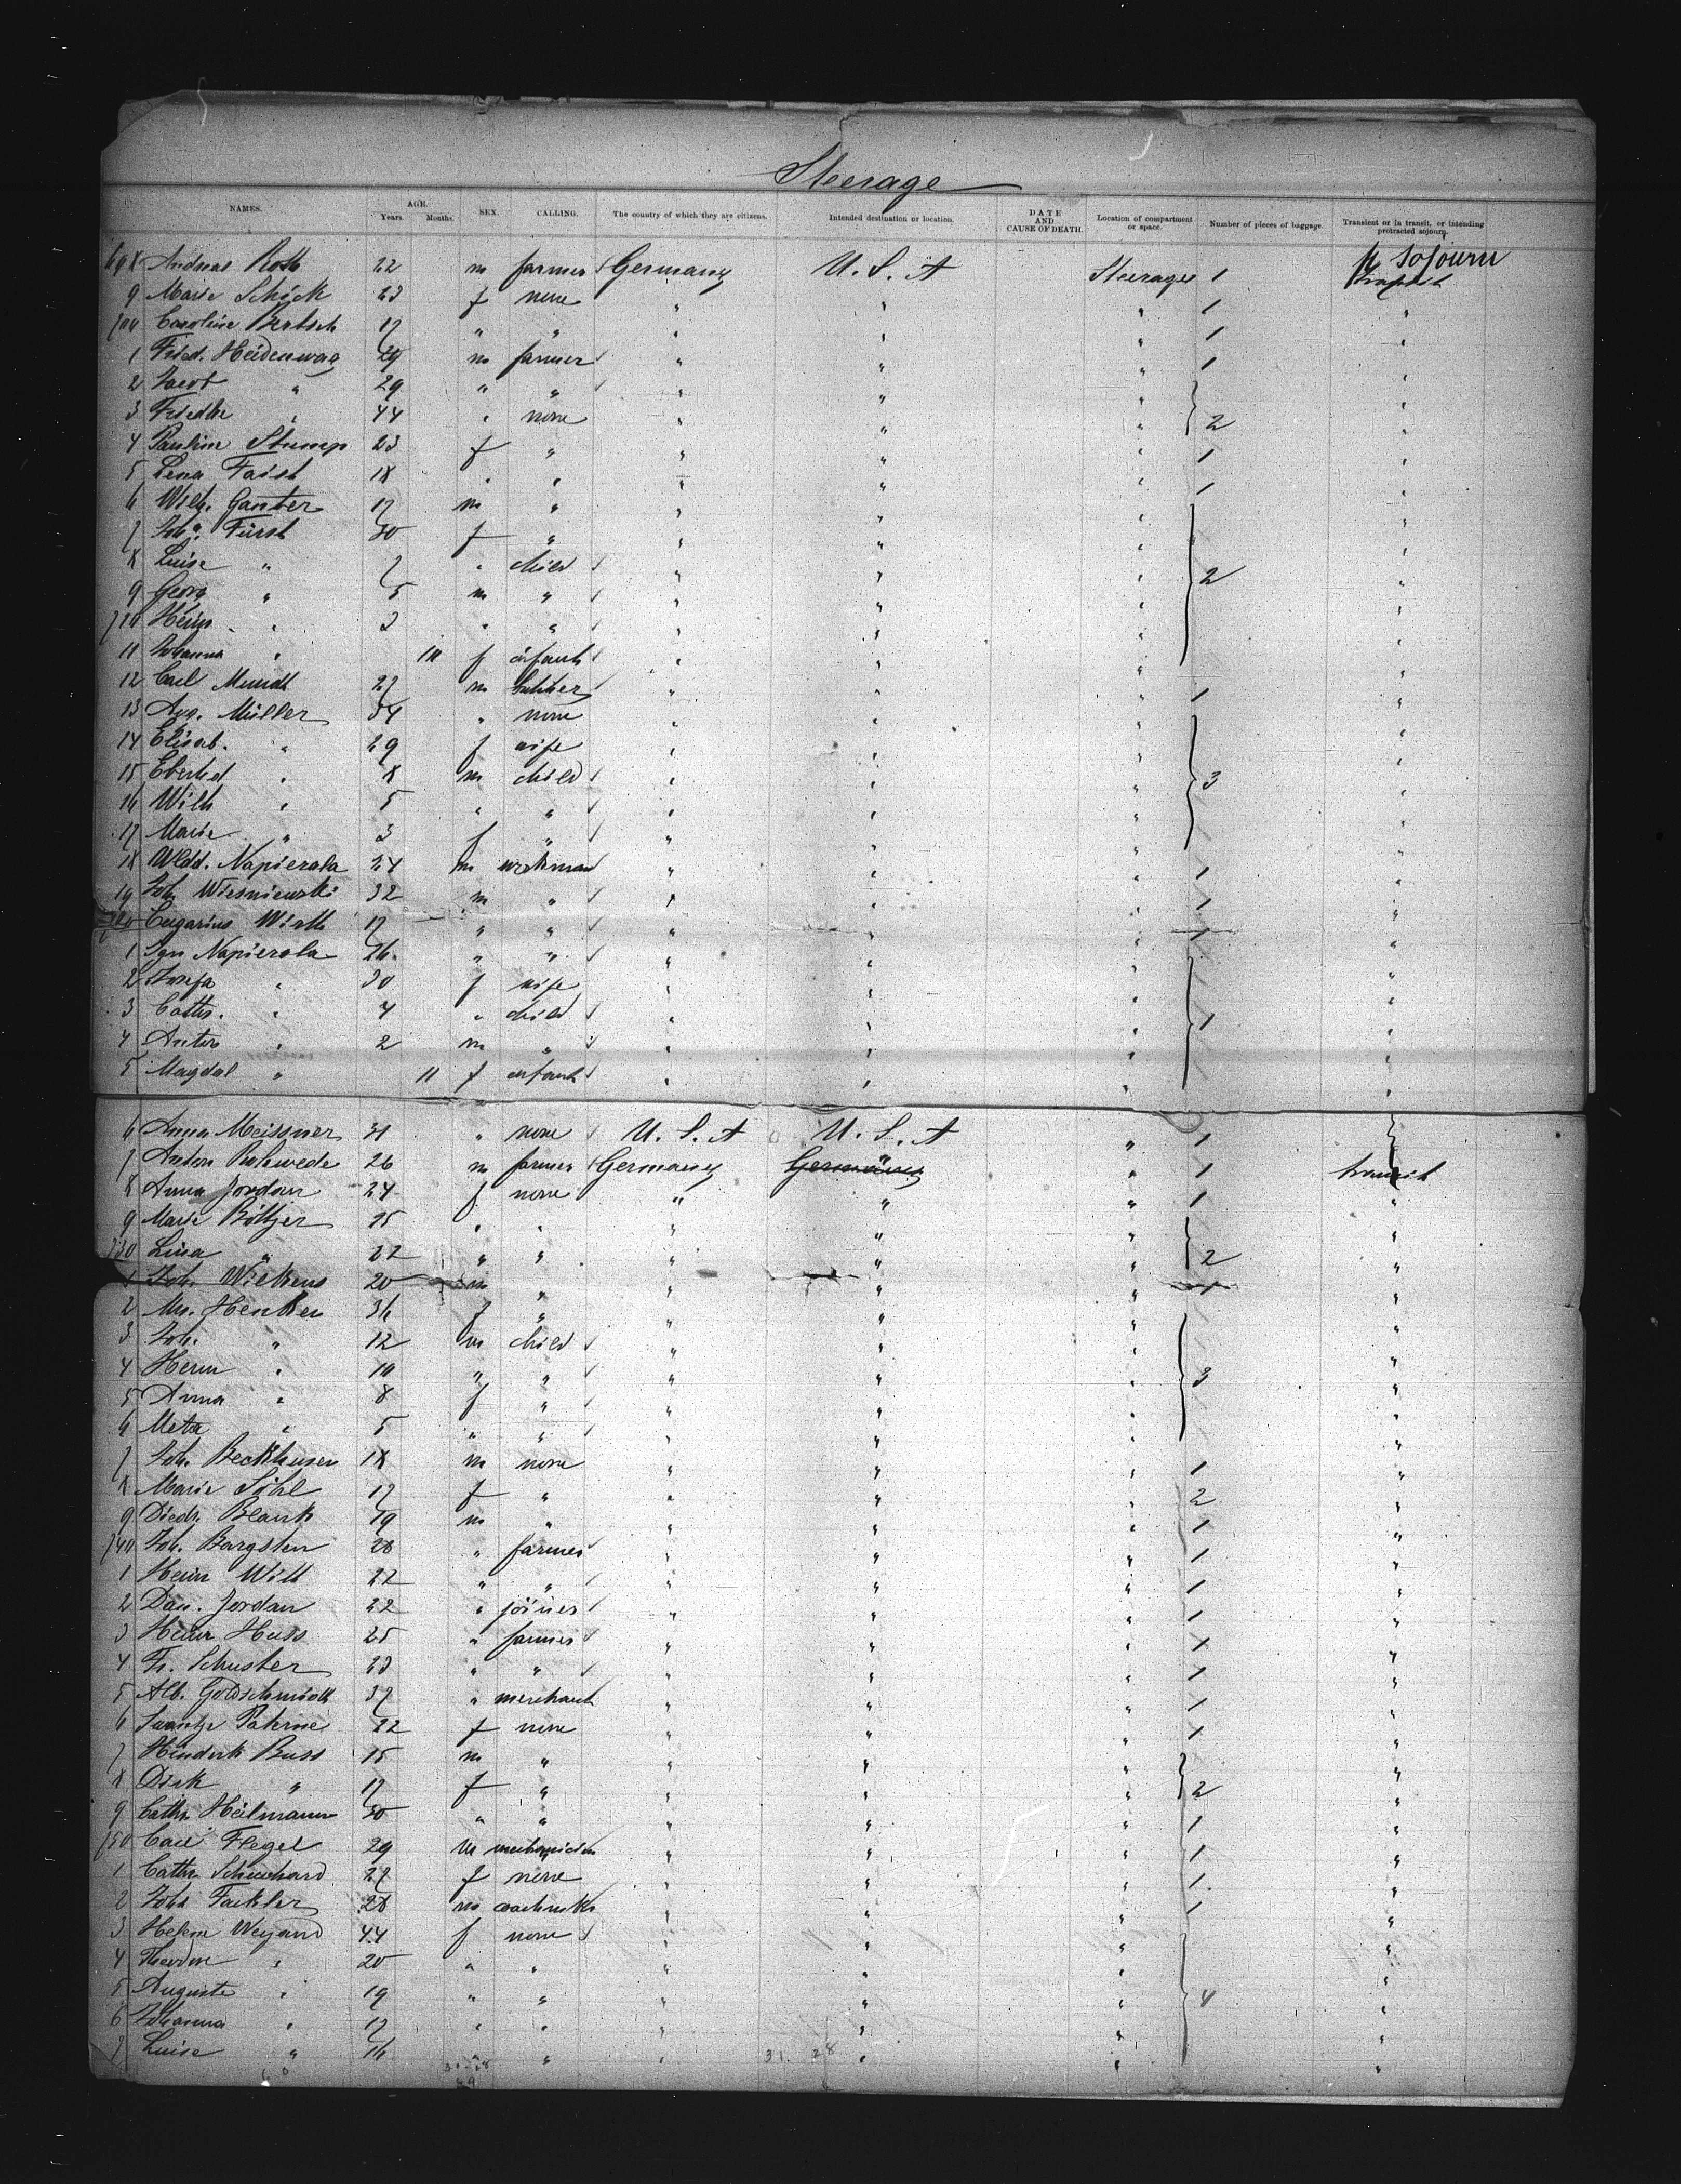 Steerage
NAMES. AGE. Years. Months. SEX. CALLING. The country of which they are citizens. Intended destination or location. DATE AND CAUSE OF DEATH. Location of compartment or space. Number of pieces of baggage. Transient or in transit, or intending protracted sojourn.
698 Andreas Roth 22 m farmer Germany U.S.A Steerage 1 p sojourn
9 Marie Schick 23 f none " " " 1 "
700 Caroline Bertsch 17 " " " " " 1 "
1 Fried. Heidenwag 29 m farmer " " " 1 "
2 Jacob " 29 " " " " " "
3 Friedke " 44 " none " " " 2 "
4 Pauline Stump 23 f " " " " 1 "
5 Lena Faist 18 " " " " " 1 "
6 Wilh. Ganter 17 m " " " " "
7 Joha Fürst 30 f " " " " "
8 Luise " 7 " child " " " 2 "
9 Georg " 5 m " " " " "
710 Hein " 3 " " " " " "
11 Johanna " 10 f infant " " " "
12 Carl Mundt 27 m butcher " " " 1 "
13 Aug. Müller 34 " none " " " "
14 Elisab. " 29 f wife " " " "
15 Eberhd " 8 m child " " " 3 "
16 Wilh " 5 " " " " " "
17 Marie " 3 f " " " " "
18 Wldd. Napierala 24 m workman " " " 1 "
19 Joh. Wisniewski 32 m " " " " 1 "
720 Eugarius Wirth 17 " " " " " 1 "
1 Ign Napierala 26 " " " " " "
2 Josefa " 30 f wife " " " "
3 Cath. " 4 " child " " " 1 "
4 Anton " 2 m " " " " "
5 Magdal " 11 f infant " " " "
6 Anna Meissner 31 " none U.S.A U.S.A " 1
7 Anton Rohwede 26 m farmer Germany Germany " " 1 transit
8 Anna Jordan 24 f none " " " 1 "
9 Marie Böttjer 25 " " " " " "
730 Lina " 22 " " " " " 2 "
1 Joh. Wilkens 20 m " " " " 1 "
2 Mrs. Henken 36 f " " " " "
3 Joh. " 12 m child " " " "
4 Herm " 10 " " " " " 3 "
5 Anna " 8 f " " " " "
6 Meta " 5 " " " " " "
7 Joh. Beckhusen 18 m none " " " 1 "
8 Marie Söhl 17 f " " " " 2 "
9 Diedr. Blank 19 m " " " " 1 "
740 Joh. Bargsten 28 " farmer " " " 1 "
1 Hein Witt 22 " " " " " 1 "
2 Dan. Jordan 22 " joiner " " " 1 "
3 Heinr Huss 25 " farmer " " " 1 "
4 Fr. Schuster 23 " " " " " 1 "
5 Alb. Goldschmidt 37 " merchant " " " 1 "
6 Swantje Paterne 22 f none " " " 1 "
7 Hinderk Buss 15 m " " " " "
8 Dirk " 17 f " " " " 2 "
9 Cath. Heilmann 30 " " " " " 1 "
750 Carl Flegel 29 m mechanician " " " 1 "
1 Cath. Schuchard 27 f none " " " 1 "
2 Johs Fackler 28 m " " " 1 "
3 Helene Weyand 44 f none " " " "
4 Theodore " 20 " " " " " "
5 Auguste " 19 " " " " " 4 "
6 Johanna " 17 " " " " " "
7 Luise " 16 " " " " " "
31. 28